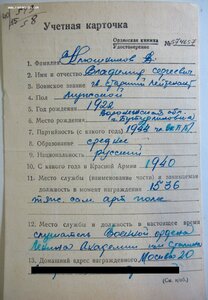 Учетная карточка
Орденская книжка
Удостоверение
№ 574657
1. Фамилия
2. Имя и отчество Владимир Сергеевич
3. Воинское звание гв. старший лейтенант
4. Пол мужской
5. Год рождения 1922
6. Место рождения Воронежская обл.
7. Партийность (с какого года) 1944
8. Образование среднее
9. Национальность русский
10. С какого года в Красной Армии 1940
11. Место службы (наименование части) и занимаемая
должность в момент награждения 1536
тяж. сам. арт. полк
12. Место службы и должность в настоящее время
слушатель Военной ордена
Ленина Академии им. Сталина
13. Домашний адрес награжденного Москва 20
(См. н/об.)